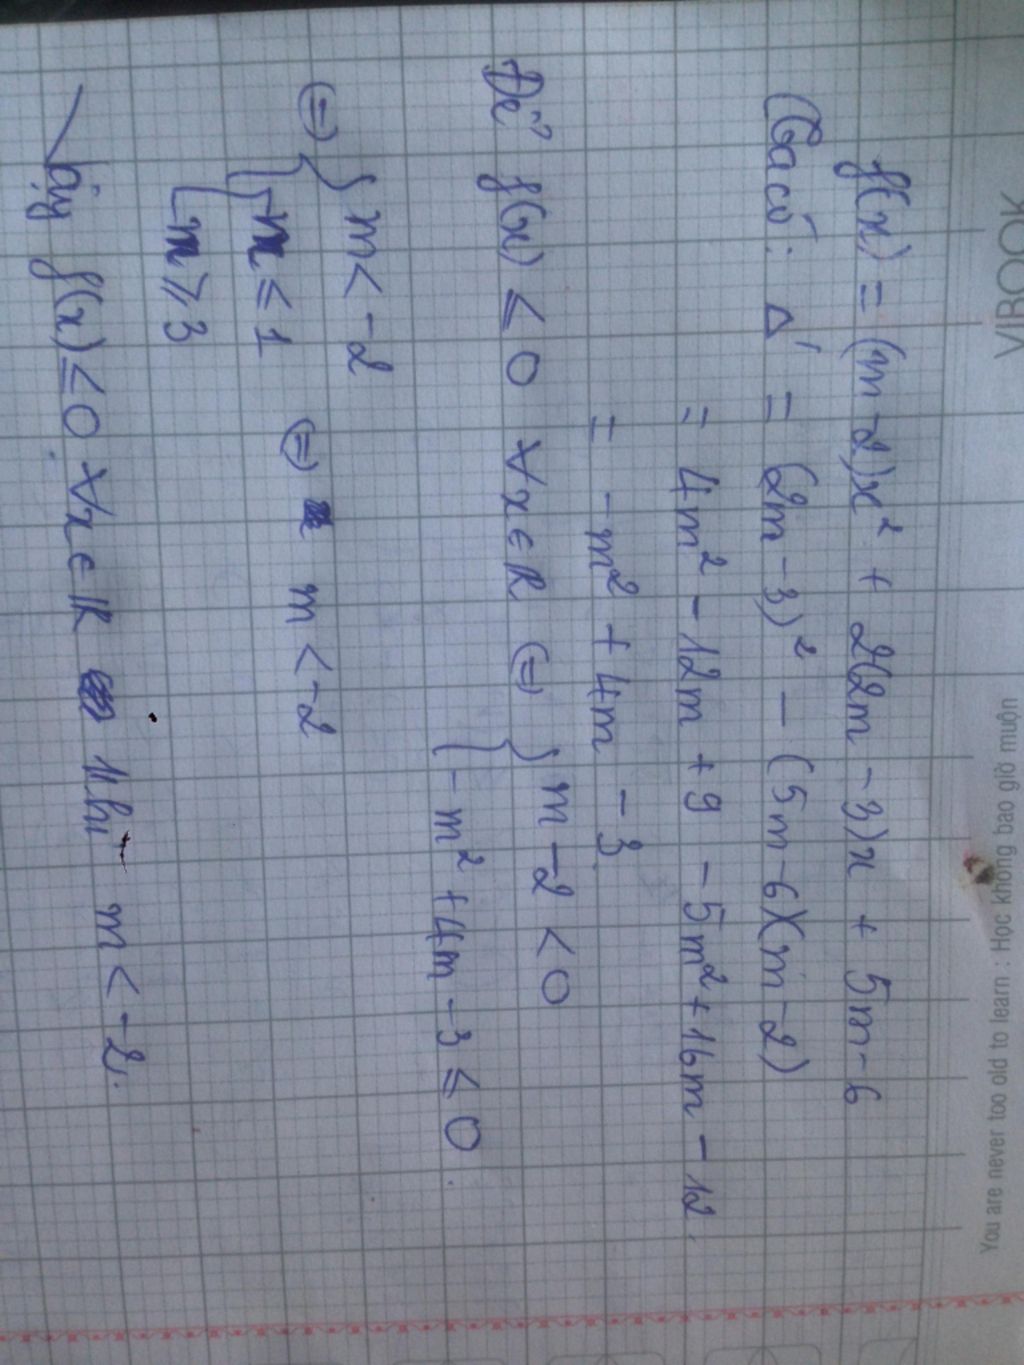 VIBOOK
You are never too old to learn : Học không bao giờ muộn
f(x) = (m-2)x² + 2(2m-3)x + 5m-6
Ta có: Δ' = (2m-3)² - (5m-6)(m-2)
= 4m² - 12m + 9 - 5m² + 16m - 12.
= -m² + 4m - 3
Để f(x) ≤ 0 ∀x∈R ⇔ { m-2 < 0
-m² + 4m - 3 ≤ 0.
⇔ { m < -2
[ m ≤ 1 ⇔ m < -2
m ≥ 3
Vậy f(x) ≤ 0 ∀x∈R khi m < -2.